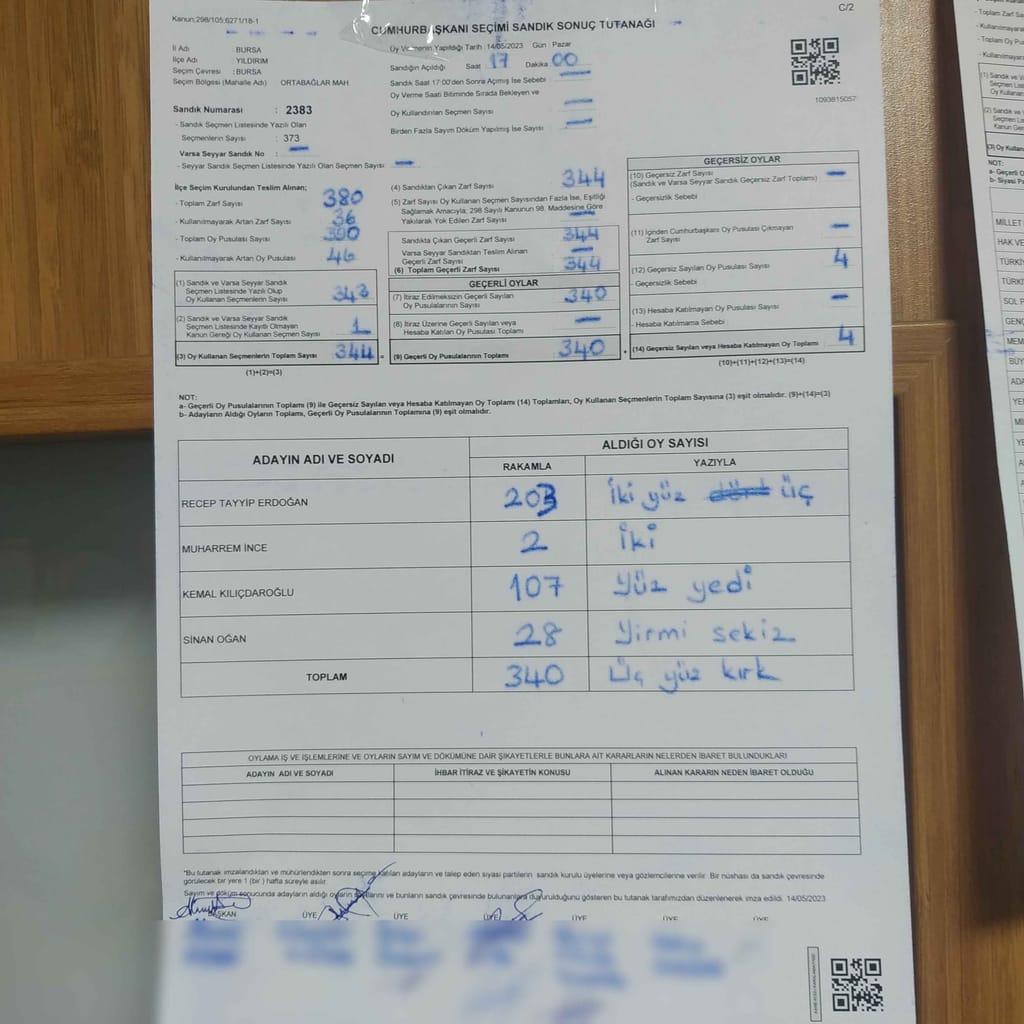 Kanun:298/105;6271/18-1
C/2
CUMHURBAŞKANI SEÇİMİ SANDIK SONUÇ TUTANAĞI
İl Adı : BURSA
İlçe Adı : YILDIRIM
Seçim Çevresi : BURSA
Seçim Bölgesi (Mahalle Adı) ORTABAĞLAR MAH.
Oy Vermenin Yapıldığı Tarih : 14/05/2023 Gün : Pazar
Sandığın Açıldığı Saat 17 Dakika 00
Sandık Saat 17:00'den Sonra Açımış İse Sebebi
Oy Verme Saati Bitiminde Sırada Bekleyen ve
Oy Kullandırılan Seçmen Sayısı
Birden Fazla Sayım Döküm Yapılmış İse Sayısı
1093815057
Sandık Numarası : 2383
- Sandık Seçmen Listesinde Yazılı Olan
Seçmenlerin Sayısı : 373
Varsa Seyyar Sandık No :
- Seyyar Sandık Seçmen Listesinde Yazılı Olan Seçmen Sayısı
İlçe Seçim Kurulundan Teslim Alınan;
- Toplam Zarf Sayısı 380
- Kullanılmayarak Artan Zarf Sayısı 36
- Toplam Oy Pusulası Sayısı
- Kullanılmayarak Artan Oy Pusulası 46
(1) Sandık ve Varsa Seyyar Sandık
Seçmen Listesinde Yazılı Olup
Oy Kullanan Seçmenlerin Sayısı 343
(2) Sandık ve Varsa Seyyar Sandık
Seçmen Listesinde Kayıtlı Olmayan
Kanun Gereği Oy Kullanan Seçmen Sayısı 1
(3) Oy Kullanan Seçmenlerin Toplam Sayısı 344 =
(1)+(2)=(3)
(4) Sandıktan Çıkan Zarf Sayısı 344
(5) Zarf Sayısı Oy Kullanan Seçmen Sayısından Fazla İse, Eşitliği
Sağlamak Amacıyla; 298 Sayılı Kanunun 98. Maddesine Göre
Yakılarak Yok Edilen Zarf Sayısı
Sandıkta Çıkan Geçerli Zarf Sayısı 344
Varsa Seyyar Sandıktan Teslim Alınan
Geçerli Zarf Sayısı
(6) Toplam Geçerli Zarf Sayısı 344
GEÇERLİ OYLAR
(7) İtiraz Edilmeksizin Geçerli Sayılan
Oy Pusulalarının Sayısı 340
(8) İtiraz Üzerine Geçerli Sayılan veya
Hesaba Katılan Oy Pusulası Toplamı
(9) Geçerli Oy Pusulalarının Toplamı 340 +
GEÇERSİZ OYLAR
(10) Geçersiz Zarf Sayısı
(Sandık ve Varsa Seyyar Sandık Geçersiz Zarf Toplamı)
- Geçersizlik Sebebi
(11) İçinden Cumhurbaşkanı Oy Pusulası Çıkmayan
Zarf Sayısı
(12) Geçersiz Sayılan Oy Pusulası Sayısı 4
- Geçersizlik Sebebi
(13) Hesaba Katılmayan Oy Pusulası Sayısı
- Hesaba Katılmama Sebebi
(14) Geçersiz Sayılan veya Hesaba Katılmayan Oy Toplamı 4
(10)+(11)+(12)+(13)=(14)
NOT:
a- Geçerli Oy Pusulalarının Toplamı (9) ile Geçersiz Sayılan veya Hesaba Katılmayan Oy Toplamı (14) Toplamları, Oy Kullanan Seçmenlerin Toplam Sayısına (3) eşit olmalıdır. (9)+(14)=(3)
b- Adayların Aldığı Oyların Toplamı, Geçerli Oy Pusulalarının Toplamına (9) eşit olmalıdır.
ADAYIN ADI VE SOYADI
ALDIĞI OY SAYISI
RAKAMLA YAZIYLA
RECEP TAYYİP ERDOĞAN 203 İki yüz dört üç
MUHARREM İNCE 2 İki
KEMAL KILIÇDAROĞLU 107 Yüz yedi
SİNAN OĞAN 28 Yirmi sekiz
TOPLAM 340 Üç yüz kırk
OYLAMA İŞ VE İŞLEMLERİNE VE OYLARIN SAYIM VE DÖKÜMÜNE DAİR ŞİKAYETLERLE BUNLARA AİT KARARLARIN NELERDEN İBARET BULUNDUKLARI
ADAYIN ADI VE SOYADI İHBAR İTİRAZ VE ŞİKAYETİN KONUSU ALINAN KARARIN NEDEN İBARET OLDUĞU
*Bu tutanak imzalandıktan ve mühürlendikten sonra seçime katılan adayların ve talep eden siyasi partilerin sandık kurulu üyelerine veya gözlemcilerine verilir. Bir nüshası da sandık çevresinde
görülecek bir yere 1 (bir ) hafta süreyle asılır.
Sayım ve döküm sonucunda adayların aldığı oyların sayılarını ve bunların sandık çevresinde bulunanlara duyurulduğunu gösteren bu tutanak tarafımızdan düzenlenerek imza edildi. 14/05/2023
BAŞKAN ÜYE ÜYE ÜYE ÜYE ÜYE ÜYE